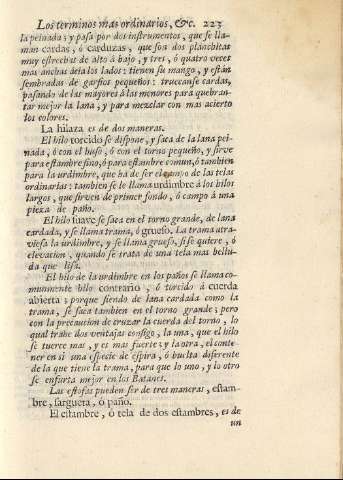 Los terminos mas ordinarios, &c. 223
la peinada; y pasa por dos instrumentos, que se lla-
man cardas, ó carduzas, que son dos planchitas
muy estrechas de alto á bajo, y tres, ó quatro veces
mas anchas ácia los lados: tienen su mango, y están
sembradas de garfios pequeños: truecanse cardas,
pasando de las mayores á las menores para quebran-
tar mejor la lana, y para mezclar con mas acierto
los colores.
La hilaza es de dos maneras.
El hilo torcido se dispone, y saca de la lana pei-
nada, ó con el huso, ó con el torno pequeño, y sirve
para estambre fino, ó para estambre comun, ó tambien
para la urdimbre, que há de ser el campo de las telas
ordinarias: tambien se le llama urdimbre á los hilos
largos, que sirven de primer fondo, ó campo á una
pieza de paño.
El hilo suave se saca en el torno grande, de lana
cardada, y se llama trama, ó grueso. La trama atra-
viesa la urdimbre, y se llama grueso, si se quiere, ó
elevacion, quando se trata de una tela mas bellu-
da que lisa.
El hilo de la urdimbre en los paños se llama co-
munmente hilo contrario, ó torcido á cuerda
abierta; porque siendo de lana cardada como la
trama, se saca tambien en el torno grande; pero
con la precaucion de cruzar la cuerda del torno, lo
qual trahe dos ventajas consigo, la una, que el hilo
se tuerce mas, y es mas fuerte; y la otra, el conte-
ner en sí una especie de espira, ó buelta diferente
de la que tiene la trama, para que lo uno, y lo otro
se enfurta mejor en los Batanes.
Las estofas pueden ser de tres maneras, estam-
bre, sarguera, ó paño.
El estambre, ó tela de dos estambres, es de
un